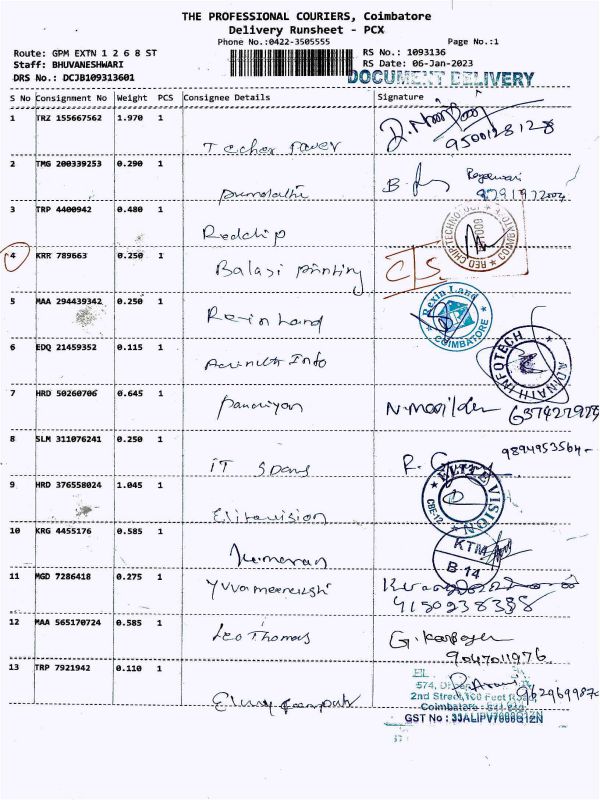 THE PROFESSIONAL COURIERS, Coimbatore
Delivery Runsheet - PCX
Phone No.:0422-3505555
Page No.:1
Route: GPM EXTN 1 2 6 8 ST
RS No.: 1093136
Staff: BHUVANESHWARI
RS Date: 06-Jan-2023
DRS No.: DCJB109313601
DOCUMENT DELIVERY
S No Consignment No Weight PCS Consignee Details Signature
1 TRZ 155667562 1.970 1
9500128128
2 TMG 200339253 0.290 1
B.
3 TRP 4400942 0.480 1
Redchip
RED CHIP TECHNOLOGY COIMBATORE
4 KRR 789663 0.250 1
Balaji printing
C/S
5 MAA 294439342 0.250 1
Rexin Land
Rexin Land
COIMBATORE
6 EDQ 21459352 0.115 1
Info
ADINATH INFOTECH
7 HRD 50260706 0.645 1
Pandiyan
8 SLM 311076241 0.250 1
9894953564-
IT
R.
9 HRD 376558024 1.045 1
ELITE VISION
CBE-12
Elitevision
10 KRG 4455176 0.585 1
Kumaran
KTM
B-14
11 MGD 7286418 0.275 1
Yuvameenakshi
12 MAA 565170724 0.585 1
Leo Thomas
G.
9047011976
13 TRP 7921942 0.110 1
574,
2nd Street,100 Feet Road,
Coimbatore
GST No : 33ALIPV7000Q1ZN